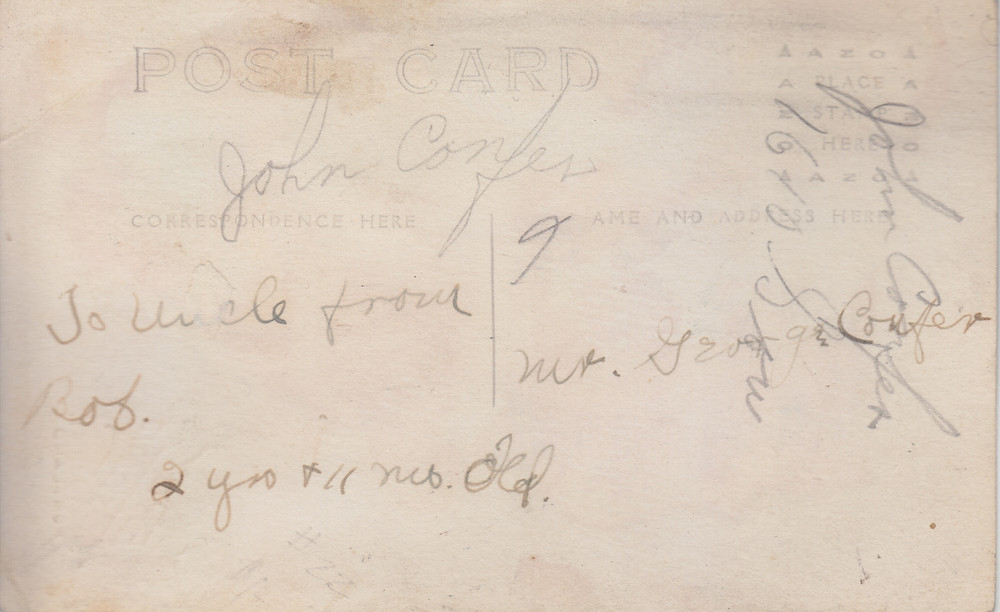 POST CARD
John Confer
CORRESPONDENCE HERE
AME AND ADDRESS HERE
AZO
PLACE
STAMP
HERE
AZO
John Confer
9
To Uncle from
Bob.
Mr. George Confer
2 yrs + 11 mo. Old.
# 22